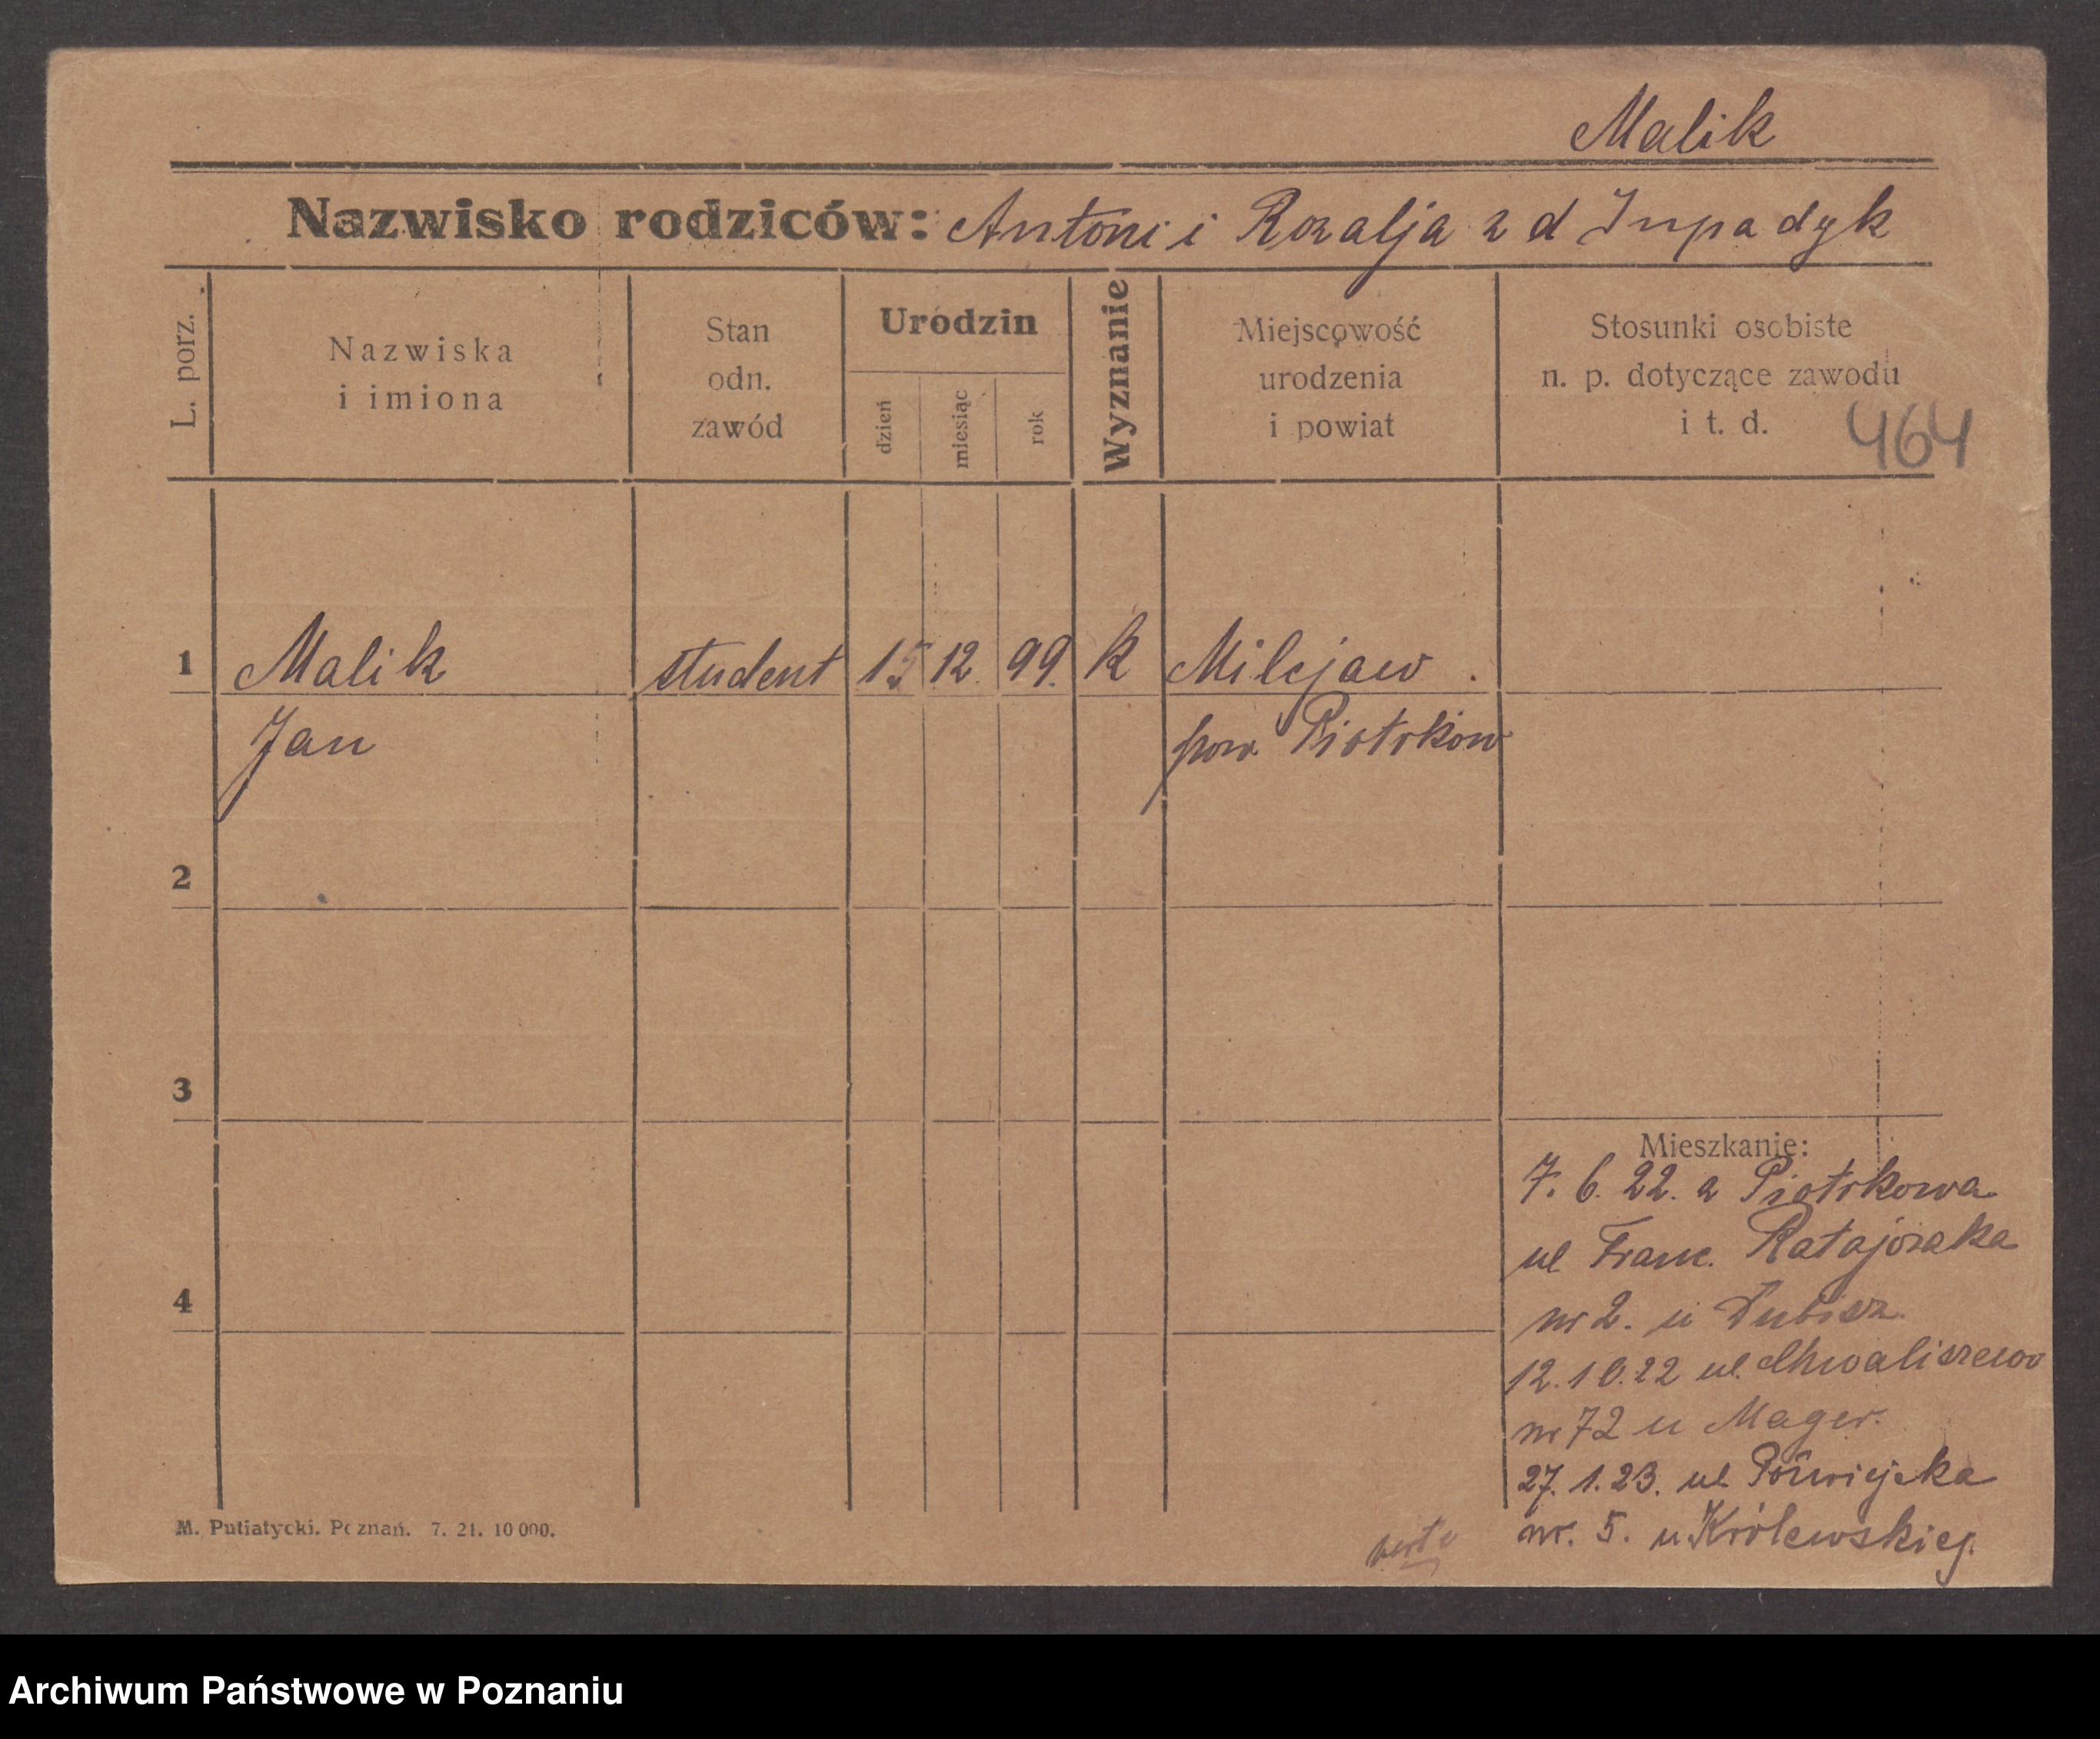 Malik
Nazwisko rodziców: Antoni i Rozalja z d
L. porz.
Nazwiska
i imiona
Stan
odn.
zawód
Urodzin
dzień
miesiąc
rok
Wyznanie
Miejscowość
urodzenia
i powiat
Stosunki osobiste
n. p. dotyczące zawodu
i t. d.
464
1 Malik student 15 12. 99. k Milejaw.
Jan pow. Piotrków
2
3
4
Mieszkanie:
7. 6. 22. z Piotrkowa
ul Franc. Ratajczaka
nr 2. u
12.10.22 ul. Chwaliszewo
nr 72 u Mager.
27. 1. 23. ul Półwiejska
nr. 5. u Królewskiej.
verte
M. Putiatycki. Poznań. 7. 21. 10 000.
Archiwum Państwowe w Poznaniu